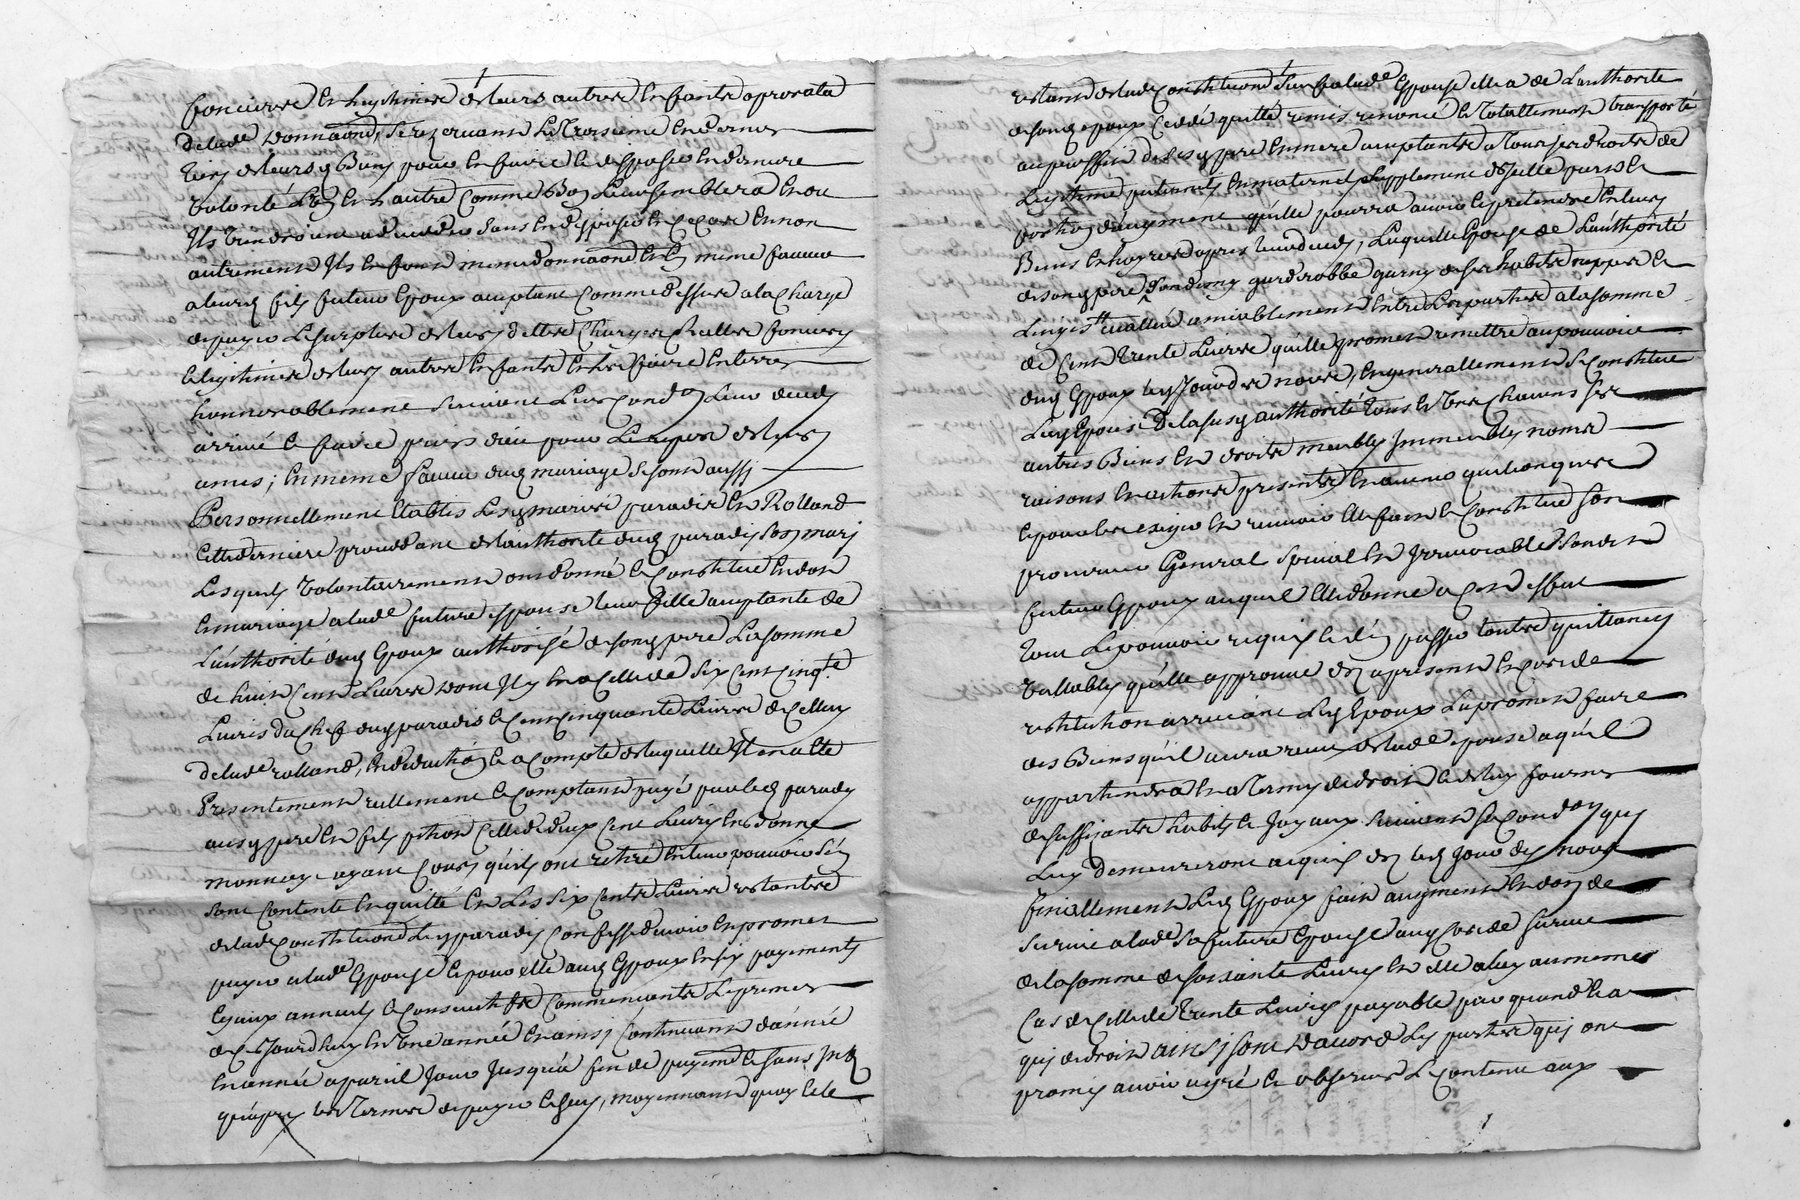 foncieres et legitimes de leurs autres enfants a prorata
de lade donnaond, se rezervants le troisieme et dernier
tiers de leursd Biens pour en faire et disposer en derniere
volonté l'un et l'autre comme Bon leur semblera et ou
Ils viendroient a deceder sans en disposer en ce cas et non
autrement Ils en font meme donnaond en meme faveur
a leurd fils futeur Epoux acceptant comme dessus a la charge
de payer le surplus de leurs dettes charges tailles foncieres
et legitimes de leurs autres enfants et de faire enterrer
honnorablement suivant leur condon leur deceds
arrivé et faire prier dieu pour le repos de leurs
ames; en meme faveur dud mariage se sont aussj
Personnellement Etablis lesd mariés paradis et Rolland
cette derniere procedant de l'authorité dud paradis son marj
Lesquels volontairement ont donné et constitué en dot
en mariage a lade future espouse leur fille acceptante de
l'authorité dud Epoux authorisé de son pere La somme
de huit cent Livres dont Il y en a celle de six cent cinqte
Livres du chef dud paradis et cent cinquante Livres de celluy
de lade rolland, en deduction et a compte de laquelle Il en a été
Presentement reellement et comptant payé par led paradis
ausd pere et fils pithon celle de deux cent Livres en bonne
monnoye ayant cours qu'ils ont retiré en leur pouvoir s'en
sont contenté et quitté et les six cents Livres restantes
de lade constituond led paradis confesse devoir et promet
payer a lade Epouse et pour elle aud Epoux en six payements
egaux annuels et consecutifs commencants le premier
de ce Jourdhuy en une année et ainsj continuant d'année
en année a pareil Jour Jusqu'a fin de payemt et sans Int
qu'apres les termes de payer echeus, moyennant quoy et le
restant de lad constituond sus fait lade Epouse elle a de l'authorité
de son Epoux cedé quitté remis renoncé et totallement transporté
au proffit de sesd pere et mere acceptants a tous ses droits de
Legitime paternels et maternels supplement d'Icelle part et
portion d'augment qu'elle pourra avoir et pretendre en leurs
Biens et hoyries apres leur deceds, Laquelle Epouse de l'authorité
de son pere son garderobbe garny de ses habits nippes et
Linges evallué amiablement entre les parties a la somme
de cent trente Livres qu'elle promet remettre au pouvoir
dud Epoux led Jour des noces, et generallement se constitue
Lad Epouse de la susd authorité tous et uns chacuns ses
autres Biens et droits meubles Immeubles noms
raisons et actions presents et avenir quelconques
et pour les exiger et recevoir elle fait et constitue son
procureur General special et Irrevocable sondit
futeur Epoux auquel elle donne a cet effet
tout le pouvoir requis et d'en passer toutes quittances
vallables qu'elle approuve des apresent et cas de
restitution arrivant led Epoux la promet faire
des Biens qu'il aura receu de lade epouse a qu'il
appartiendra et a termes de droit et de luy fournir
de suffisants habits et Joyaux suivant sa condon quj
Luy demeureront acquis des led Jour des noces
finallement led Epoux fait augment et don de
survie a lade sa future Epouse aud cas de survie
de la somme de soixante Livres et elle a luy au meme
cas de celle de trente Livres payable par quand et a
quj de droit ainsj sont d'accord les parties quj ont
promis avoir agré et observer le contenu aux